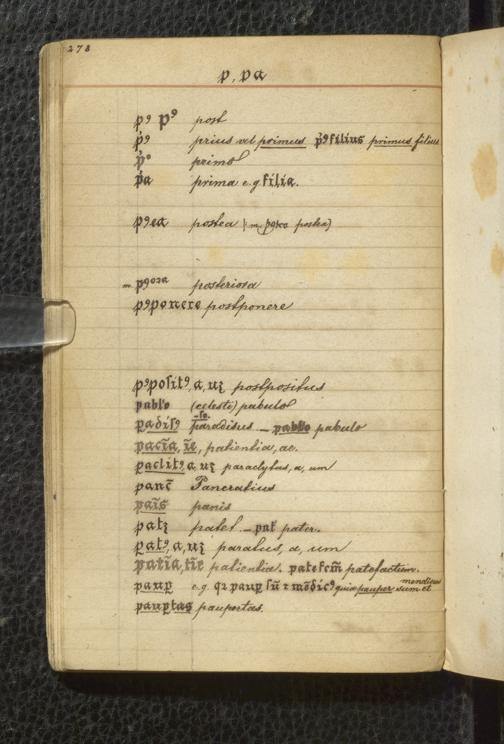 278
p, pa
pꝰ pꝰ post
p̍ꝰ prius vel primus p̍ꝰ filius primus filius
p̍º primo
p̍a prima e.g filia.
pꝰea postea
m. pꝰoza posteriosa
pꝰponere postponere
pꝰpositꝰ, a, uʒ postpositus
pablo (celeste) pabulo
padisꝰ paradisus – pablo pabulo
pacīa, īe, patientia, ae.
paclitꝰ, a, uʒ paraclytus, a, um
panc̄ Pancratius
paīs panis
patʒ patet. – pat̄ pater.
patꝰ, a, uʒ paratus, a, um
patīa, tīe patientia. patefcm̄ patefactum.
paup e.g. qz paup sū ⁊ mōdicꝰ quia pauper sum et mendicus
pauptas paupertas.